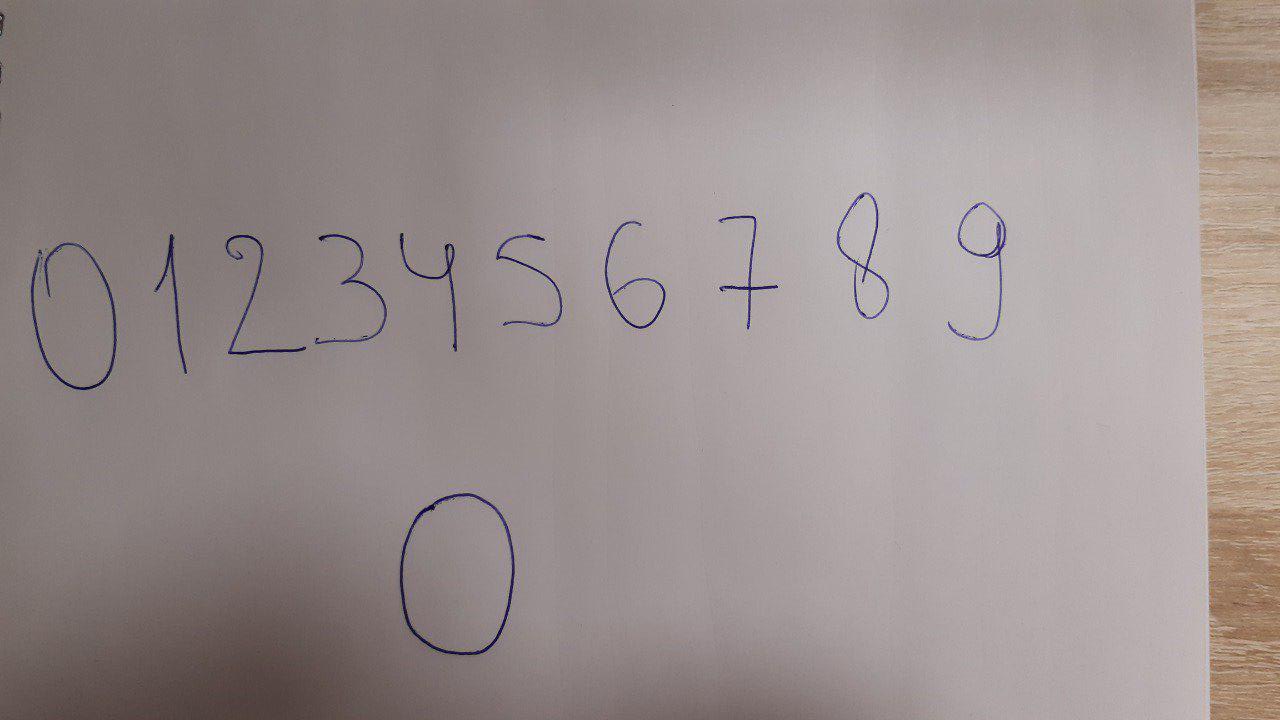 0123456789
0